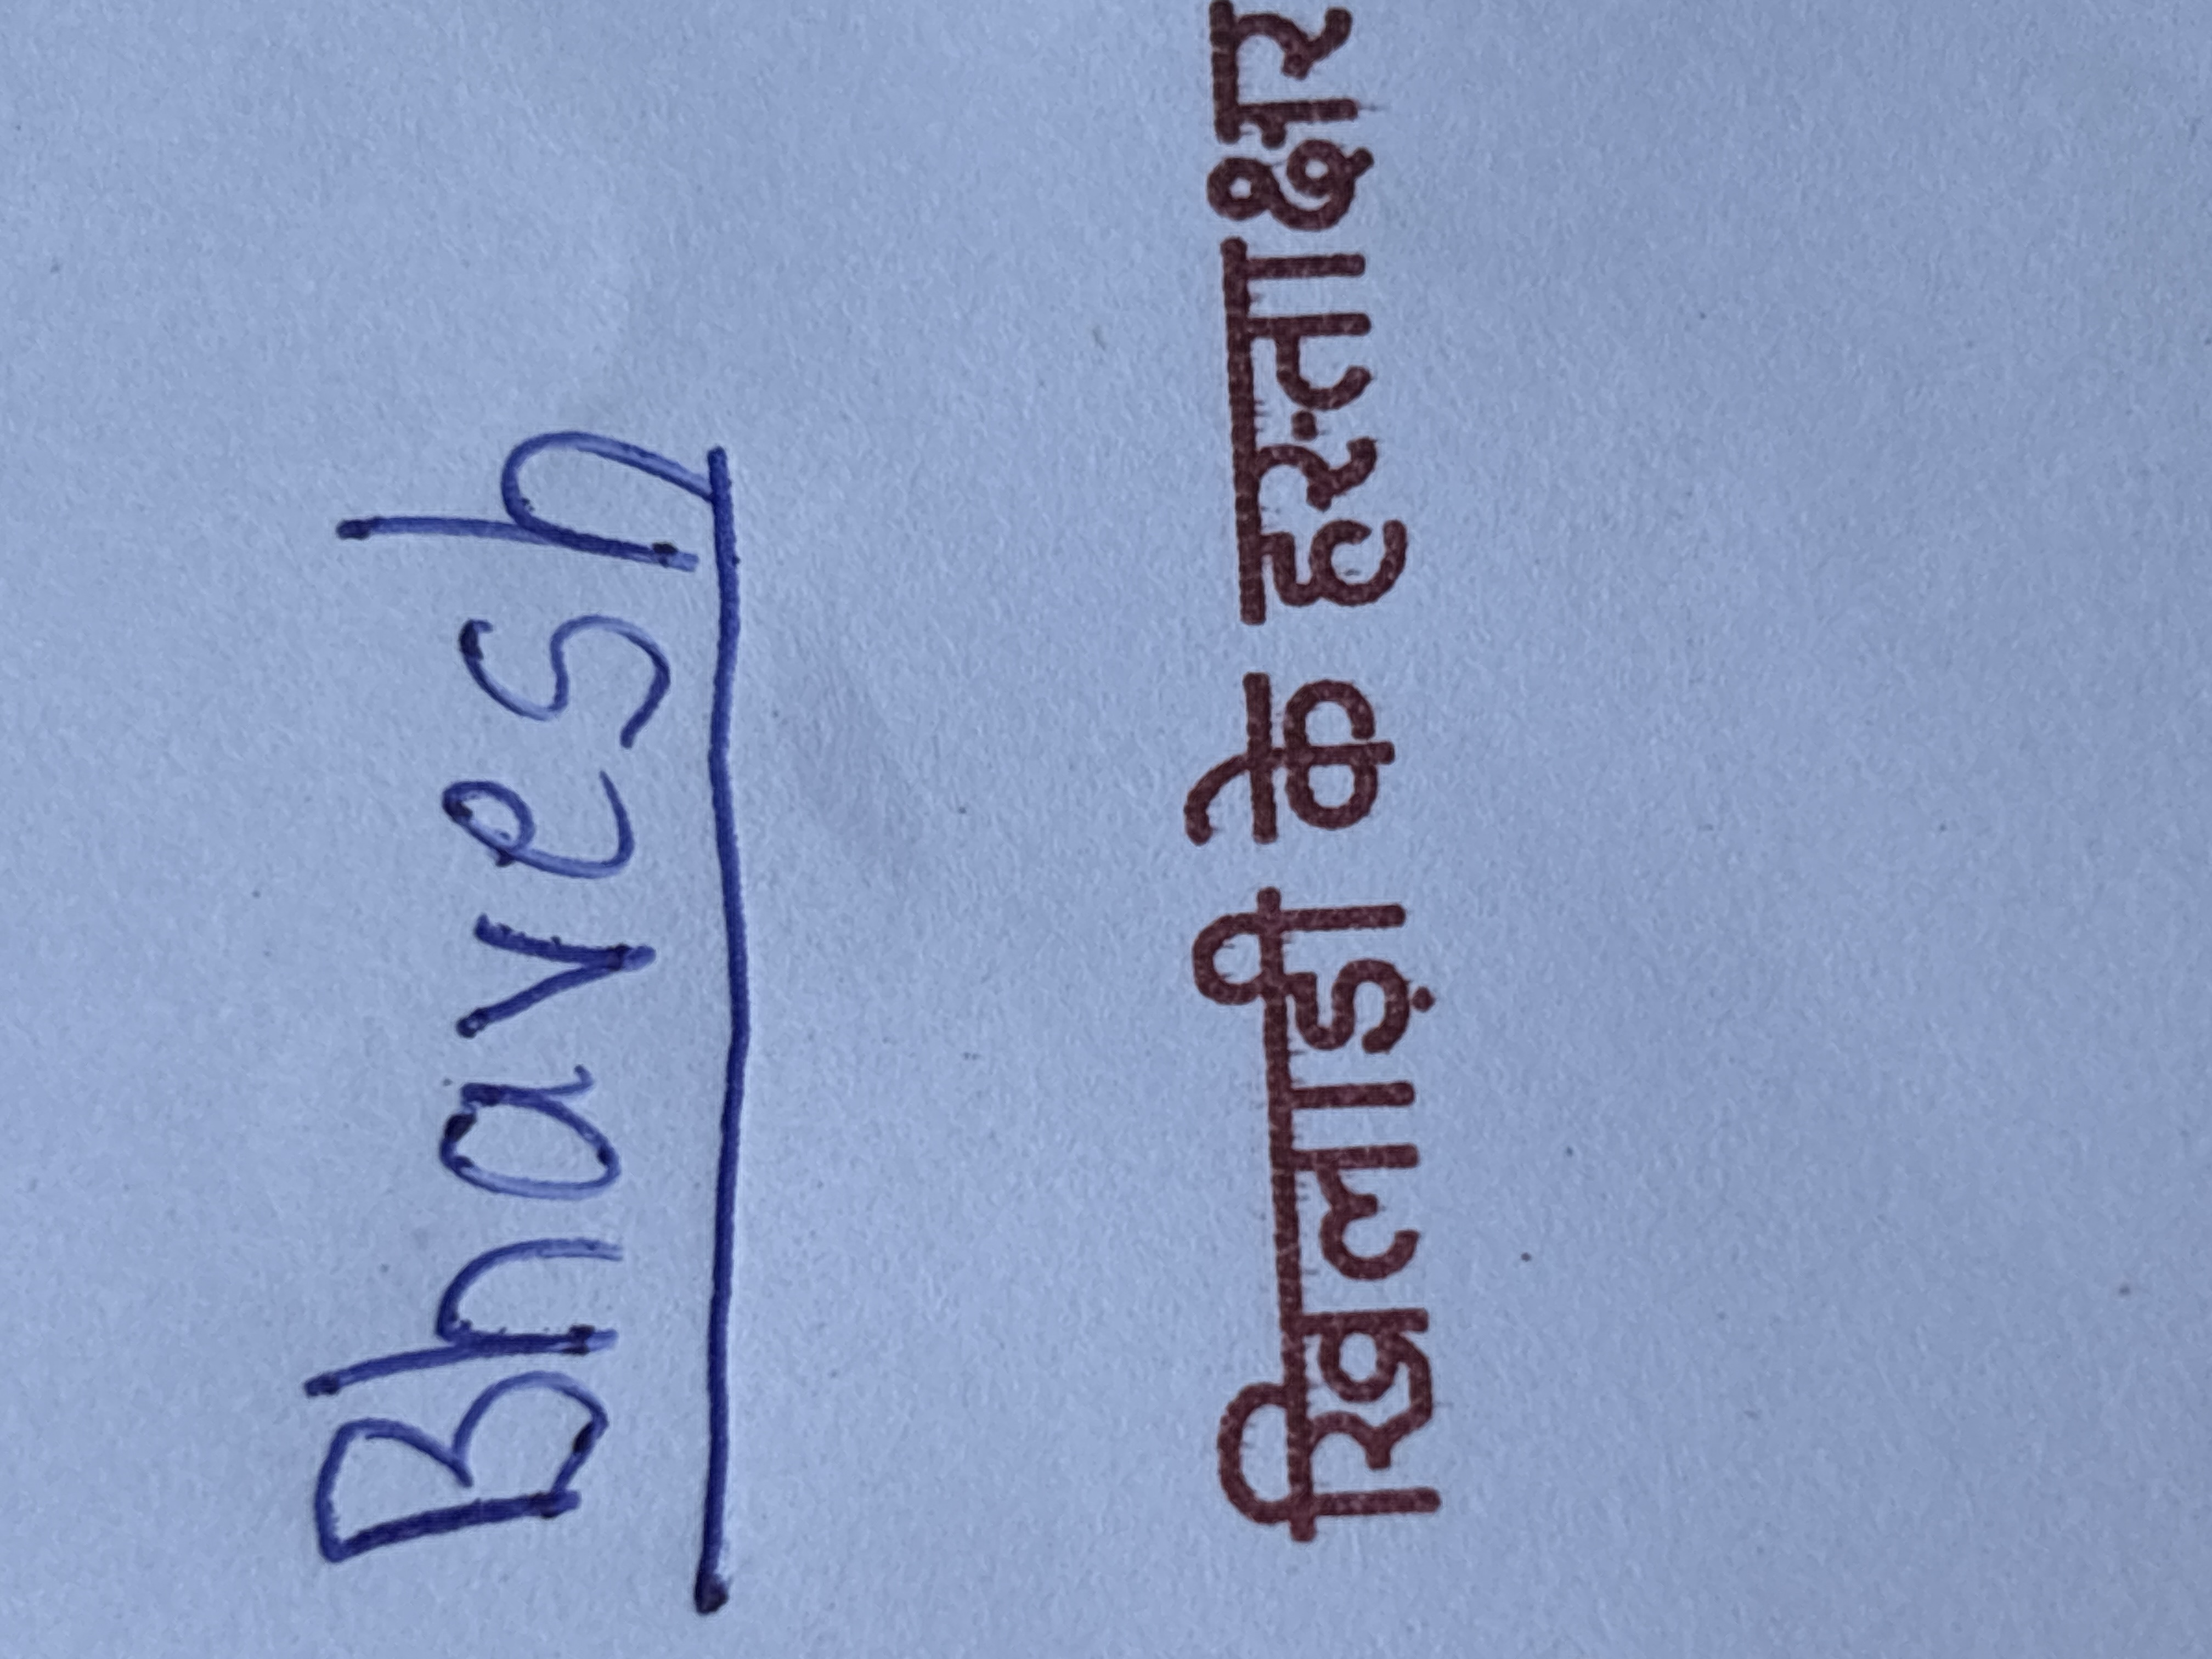 Bhavesh
खिलाड़ी के हस्ताक्षर